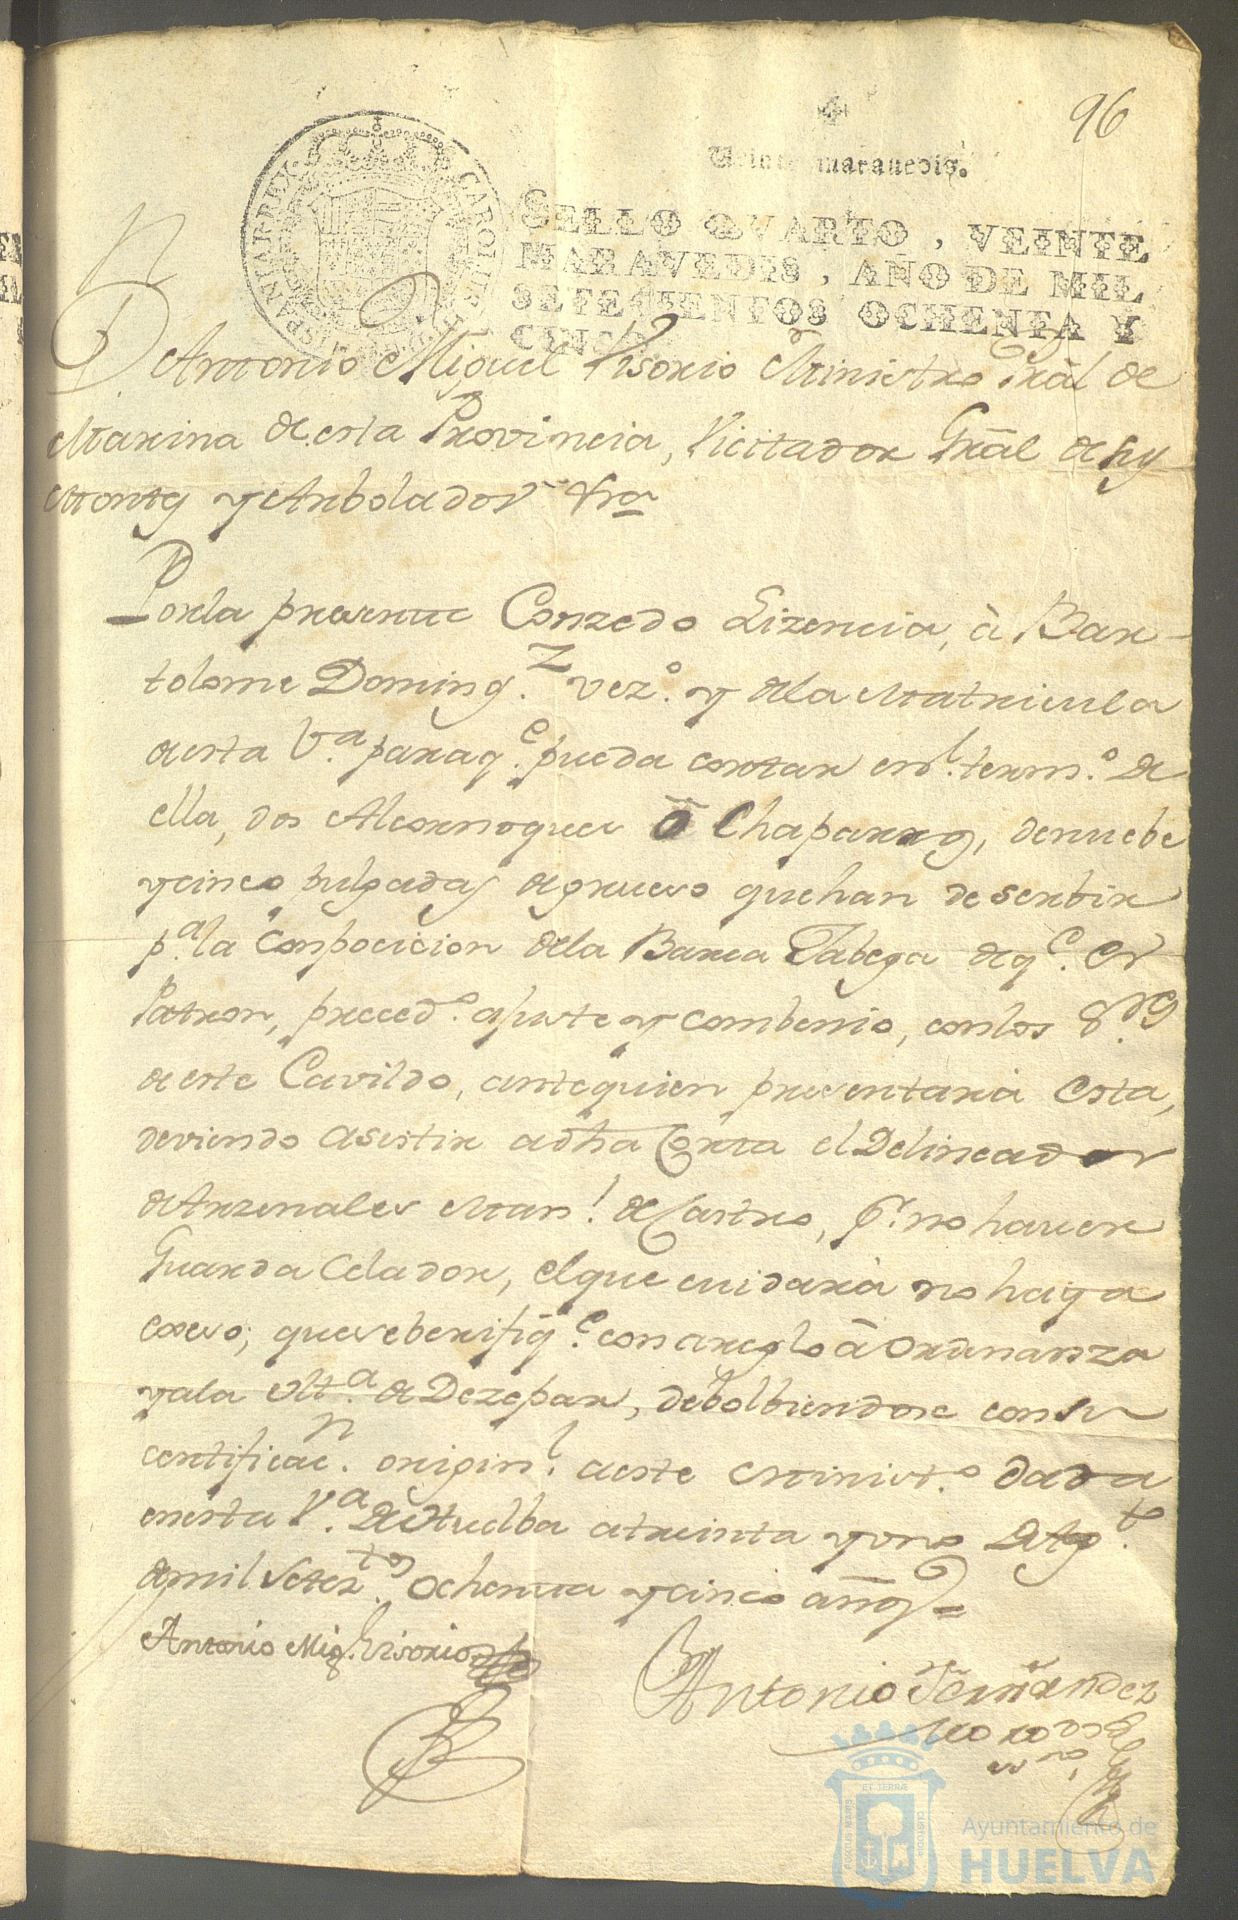 96
Veinte maravedis.
SELLO QVARTO, VEINTE
MARAVEDIS, AÑO DE MIL
SETECIENTOS OCHENTA Y
CINCO
HISPANIAR·REX· CAROLUS·III·D·G·
D Antonio Miguel Visorio Ministro Gral de
Marina de esta Provincia, Vicitador Gral de sus
Montes y Arbolados &ra
Por la presente Conzedo Lizencia, à Bar-
tolome Doming.z vez.o y de la Matricula
de esta V.a para q.e pueda cortar en l. term.o de
ella, dos Alcornoques ò Chaparros, de nuebe
y cinco pulgadas de grueso que han de serbir
p.a la Conpocicion de la Barca Tabega de q.e es
Patron, preced.o ajuste y combenio, con los
de este Cavildo, ante quien presentarà esta,
deviendo asistir a dha Corta el Delineador
de Arzenales Man.l de Castro, p.r no haver
Guarda Celador, el que cuidarà no haiga
exeso; que se berifiq.e con areglo à Ordenanza
y a la de Dezepar, debolbiendose con su
certificac.n origin.l a este Minist.o dada
en esta V.a de Huelba a treinta y uno de Ag.to
de mil setez.tos ochenta y cinco años=
Antonio Mig.l Visorio
Antonio Fernandez
Ayuntamiento de
HUELVA